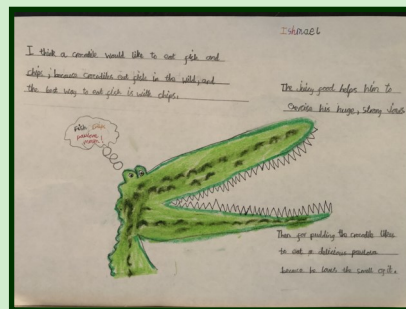 Ishmael
I think a crocodile would like to eat fish and
chips, because crocodiles eat fish in the wild, and
the best way to eat fish is with chips.
The chewy food helps him to
exercise his huge, strong jaws
fish chips
pavlova
Then for pudding the crocodile likes
to eat a delicious pavlova
because he loves the smell of it.